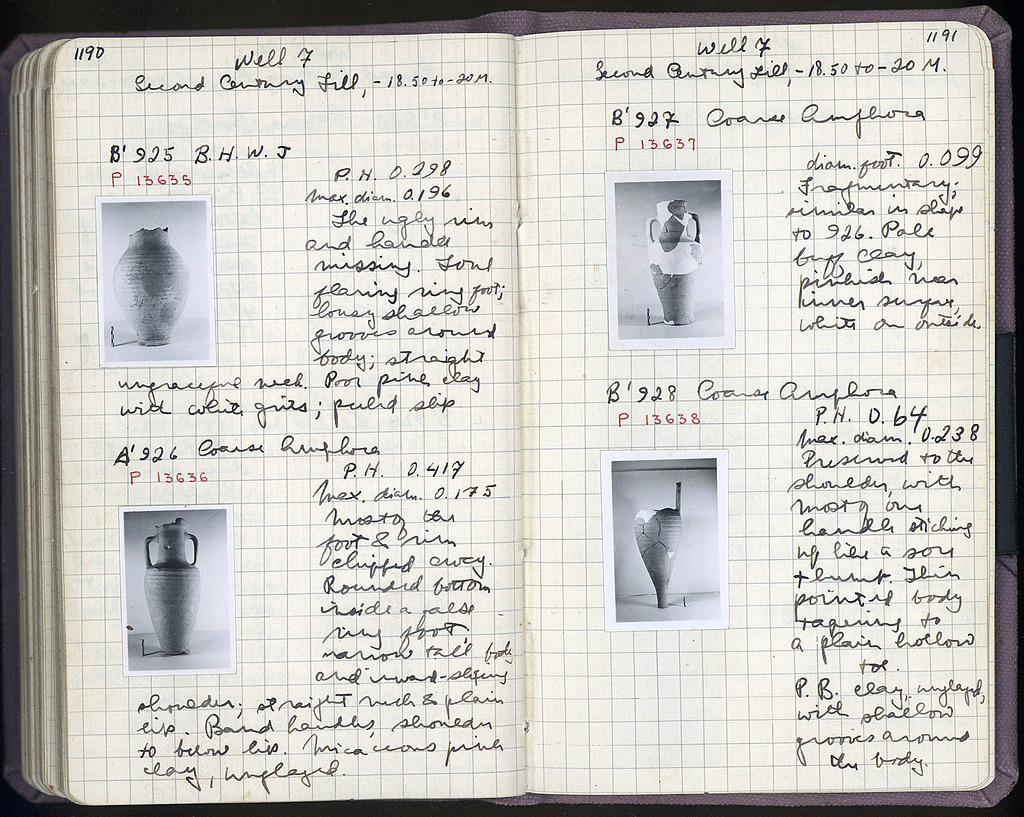 1190
Well 7
Second Century Fill, -18.50 to -20 M.
B' 925 B.H.W.J
P 13635
P.H. 0.298
max. diam. 0.196
The ugly rim
and handle
missing.
flaring ring foot;
shallow
grooves around
body; straight
ungraceful neck. Poor pink clay
with white grits; peeled slip
A' 926 Coarse Amphora
P 13636
P.H. 0.417
Max. diam. 0.175
Most of the
foot & rim
chipped away.
Rounded bottom
inside a false
ring foot,
narrow tall body
and inward-sloping
shoulder; straight neck & plain
lip. Band handles, shoulder
to below lip. Micaceous pink
clay, unglazed.
1191
Well 7
Second Century Fill, -18.50 to -20 M.
B' 927 Coarse Amphora
P 13637
diam. foot. 0.099
Fragmentary;
similar in shape
to 926. Pale
buff clay,
pinkish near
inner surface,
white on outside
B' 928 Coarse Amphora
P 13638
P.H. 0.64
Max. diam. 0.238
Preserved to the
shoulder, with
most of one
handle sticking
up like a sore
thumb. Thin
pointed body
tapering to
a plain hollow
toe.
P.B. clay, unglazed,
with shallow
grooves around
the body.